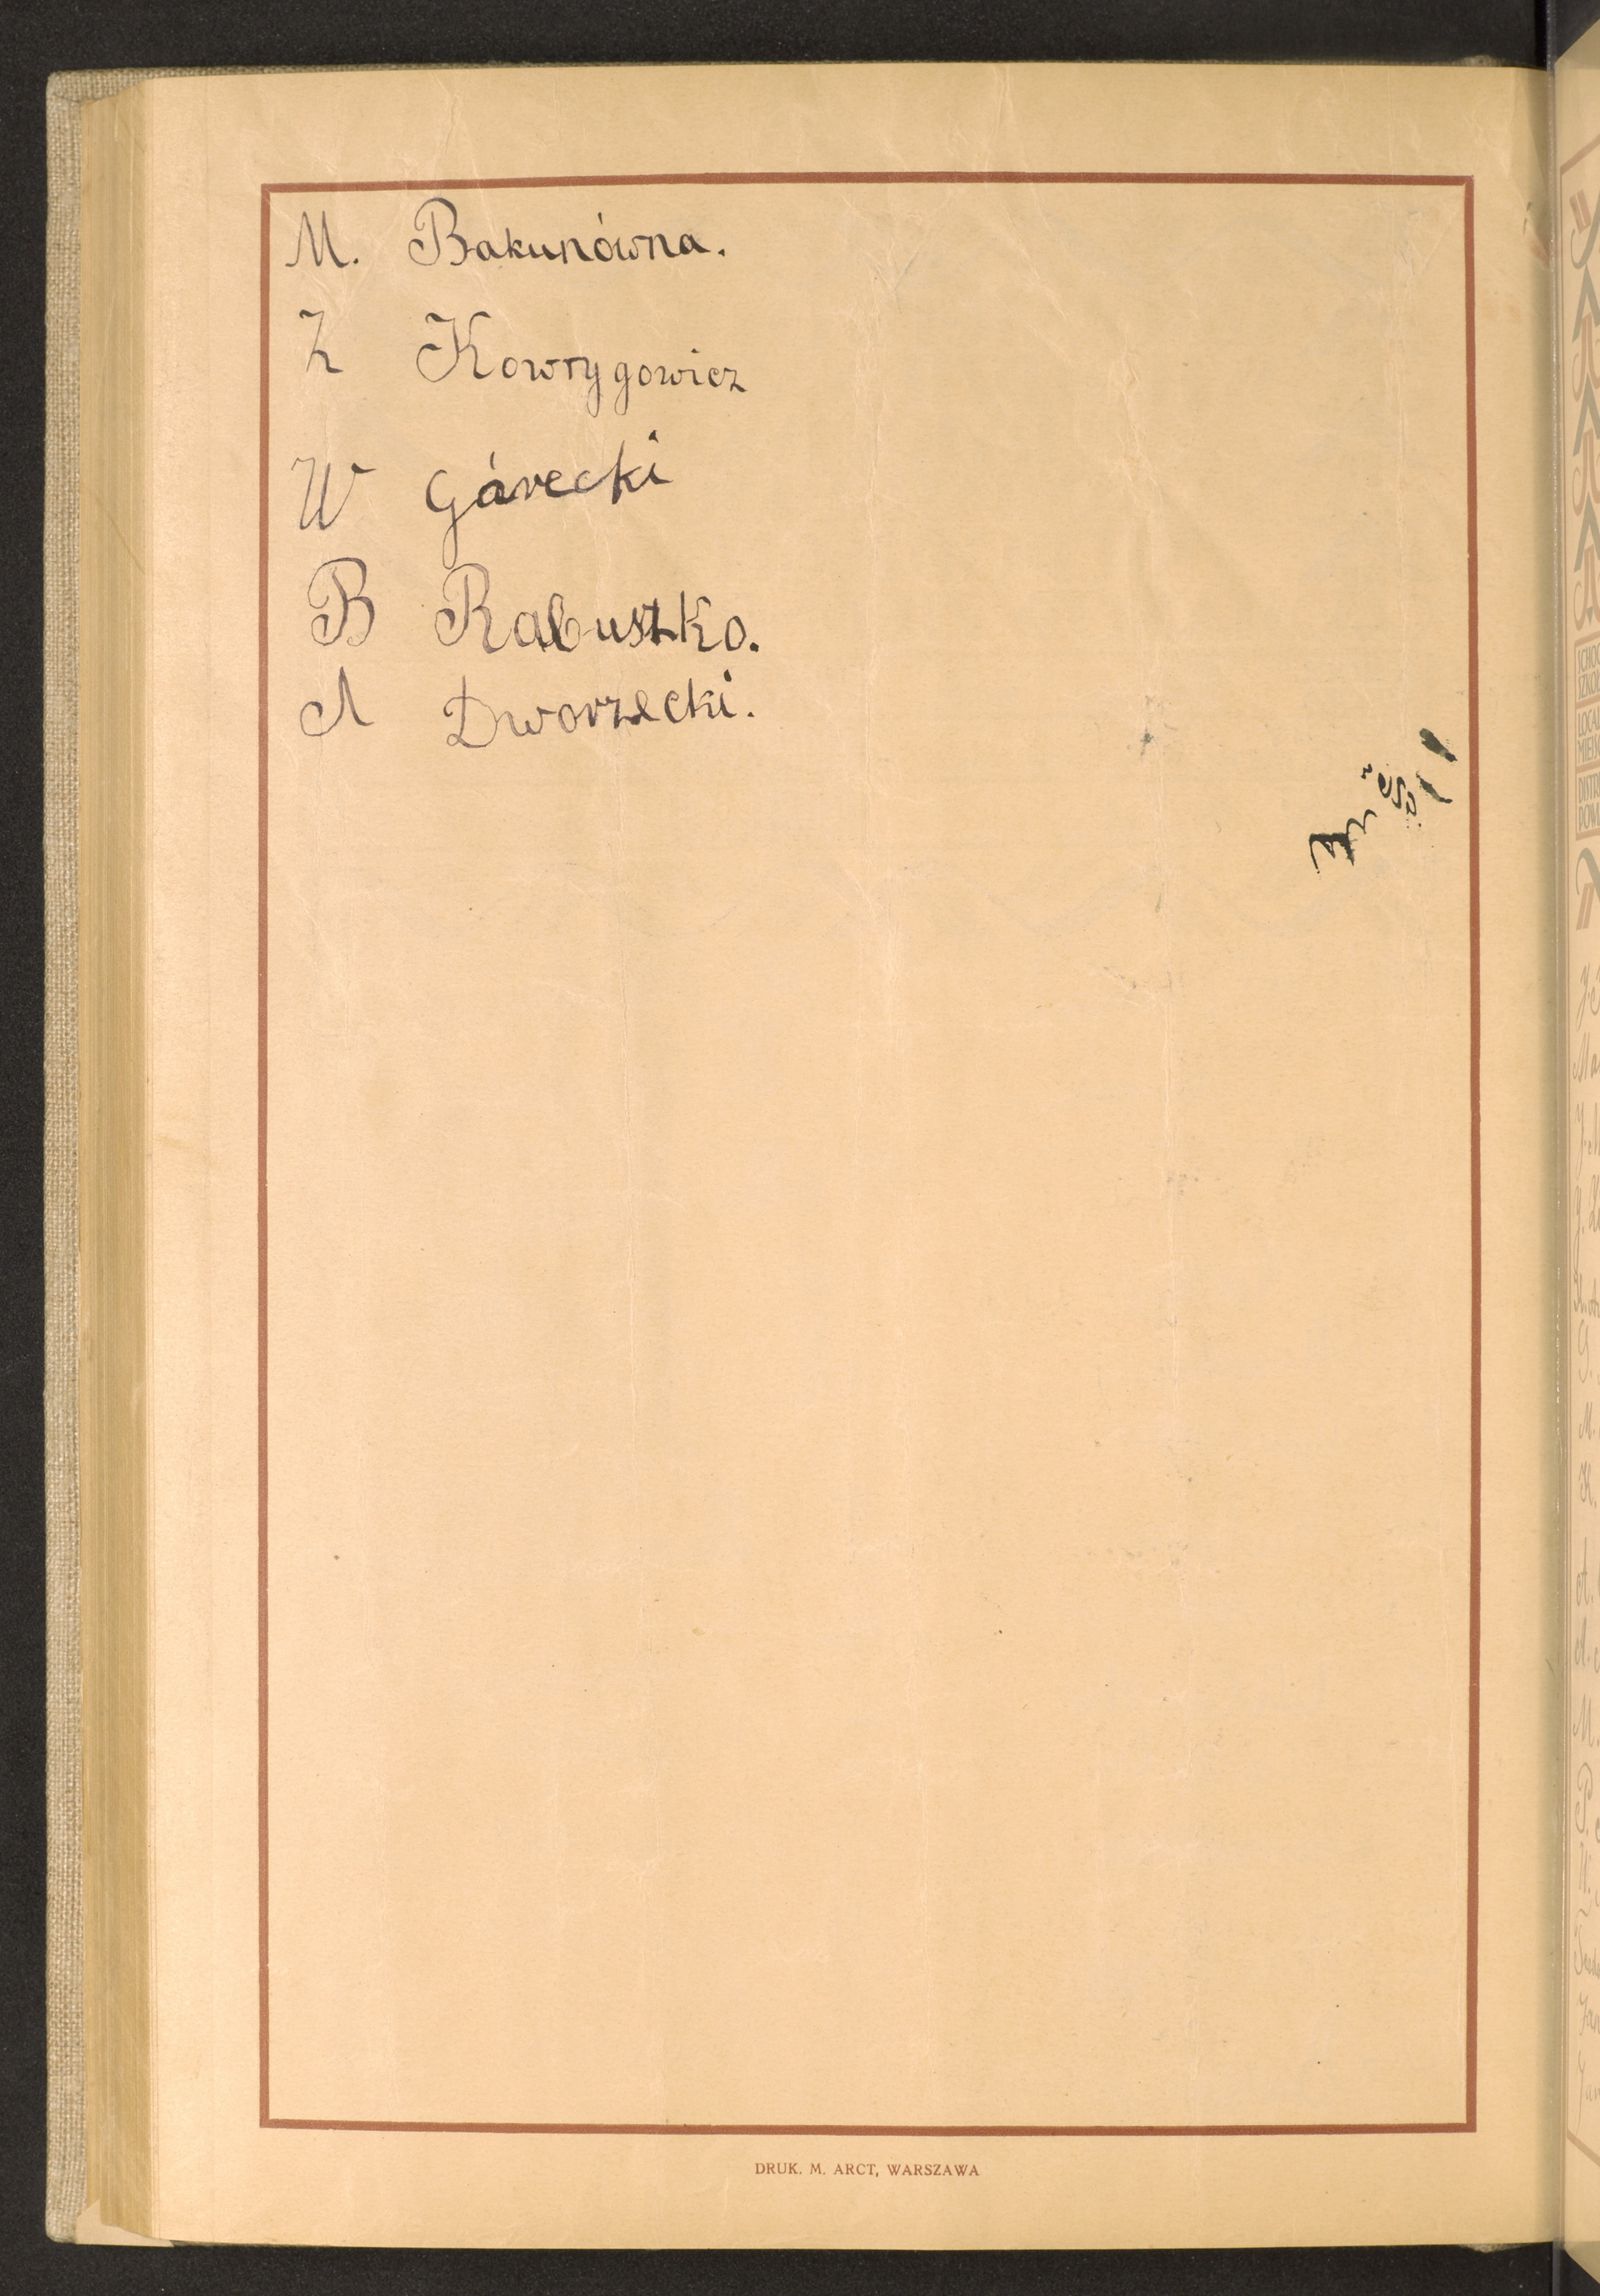 M. Bakunówna.
Z Kowrygowicz
W Górecki
B Rabuszko.
A Dworzecki.
DRUK. M. ARCT, WARSZAWA